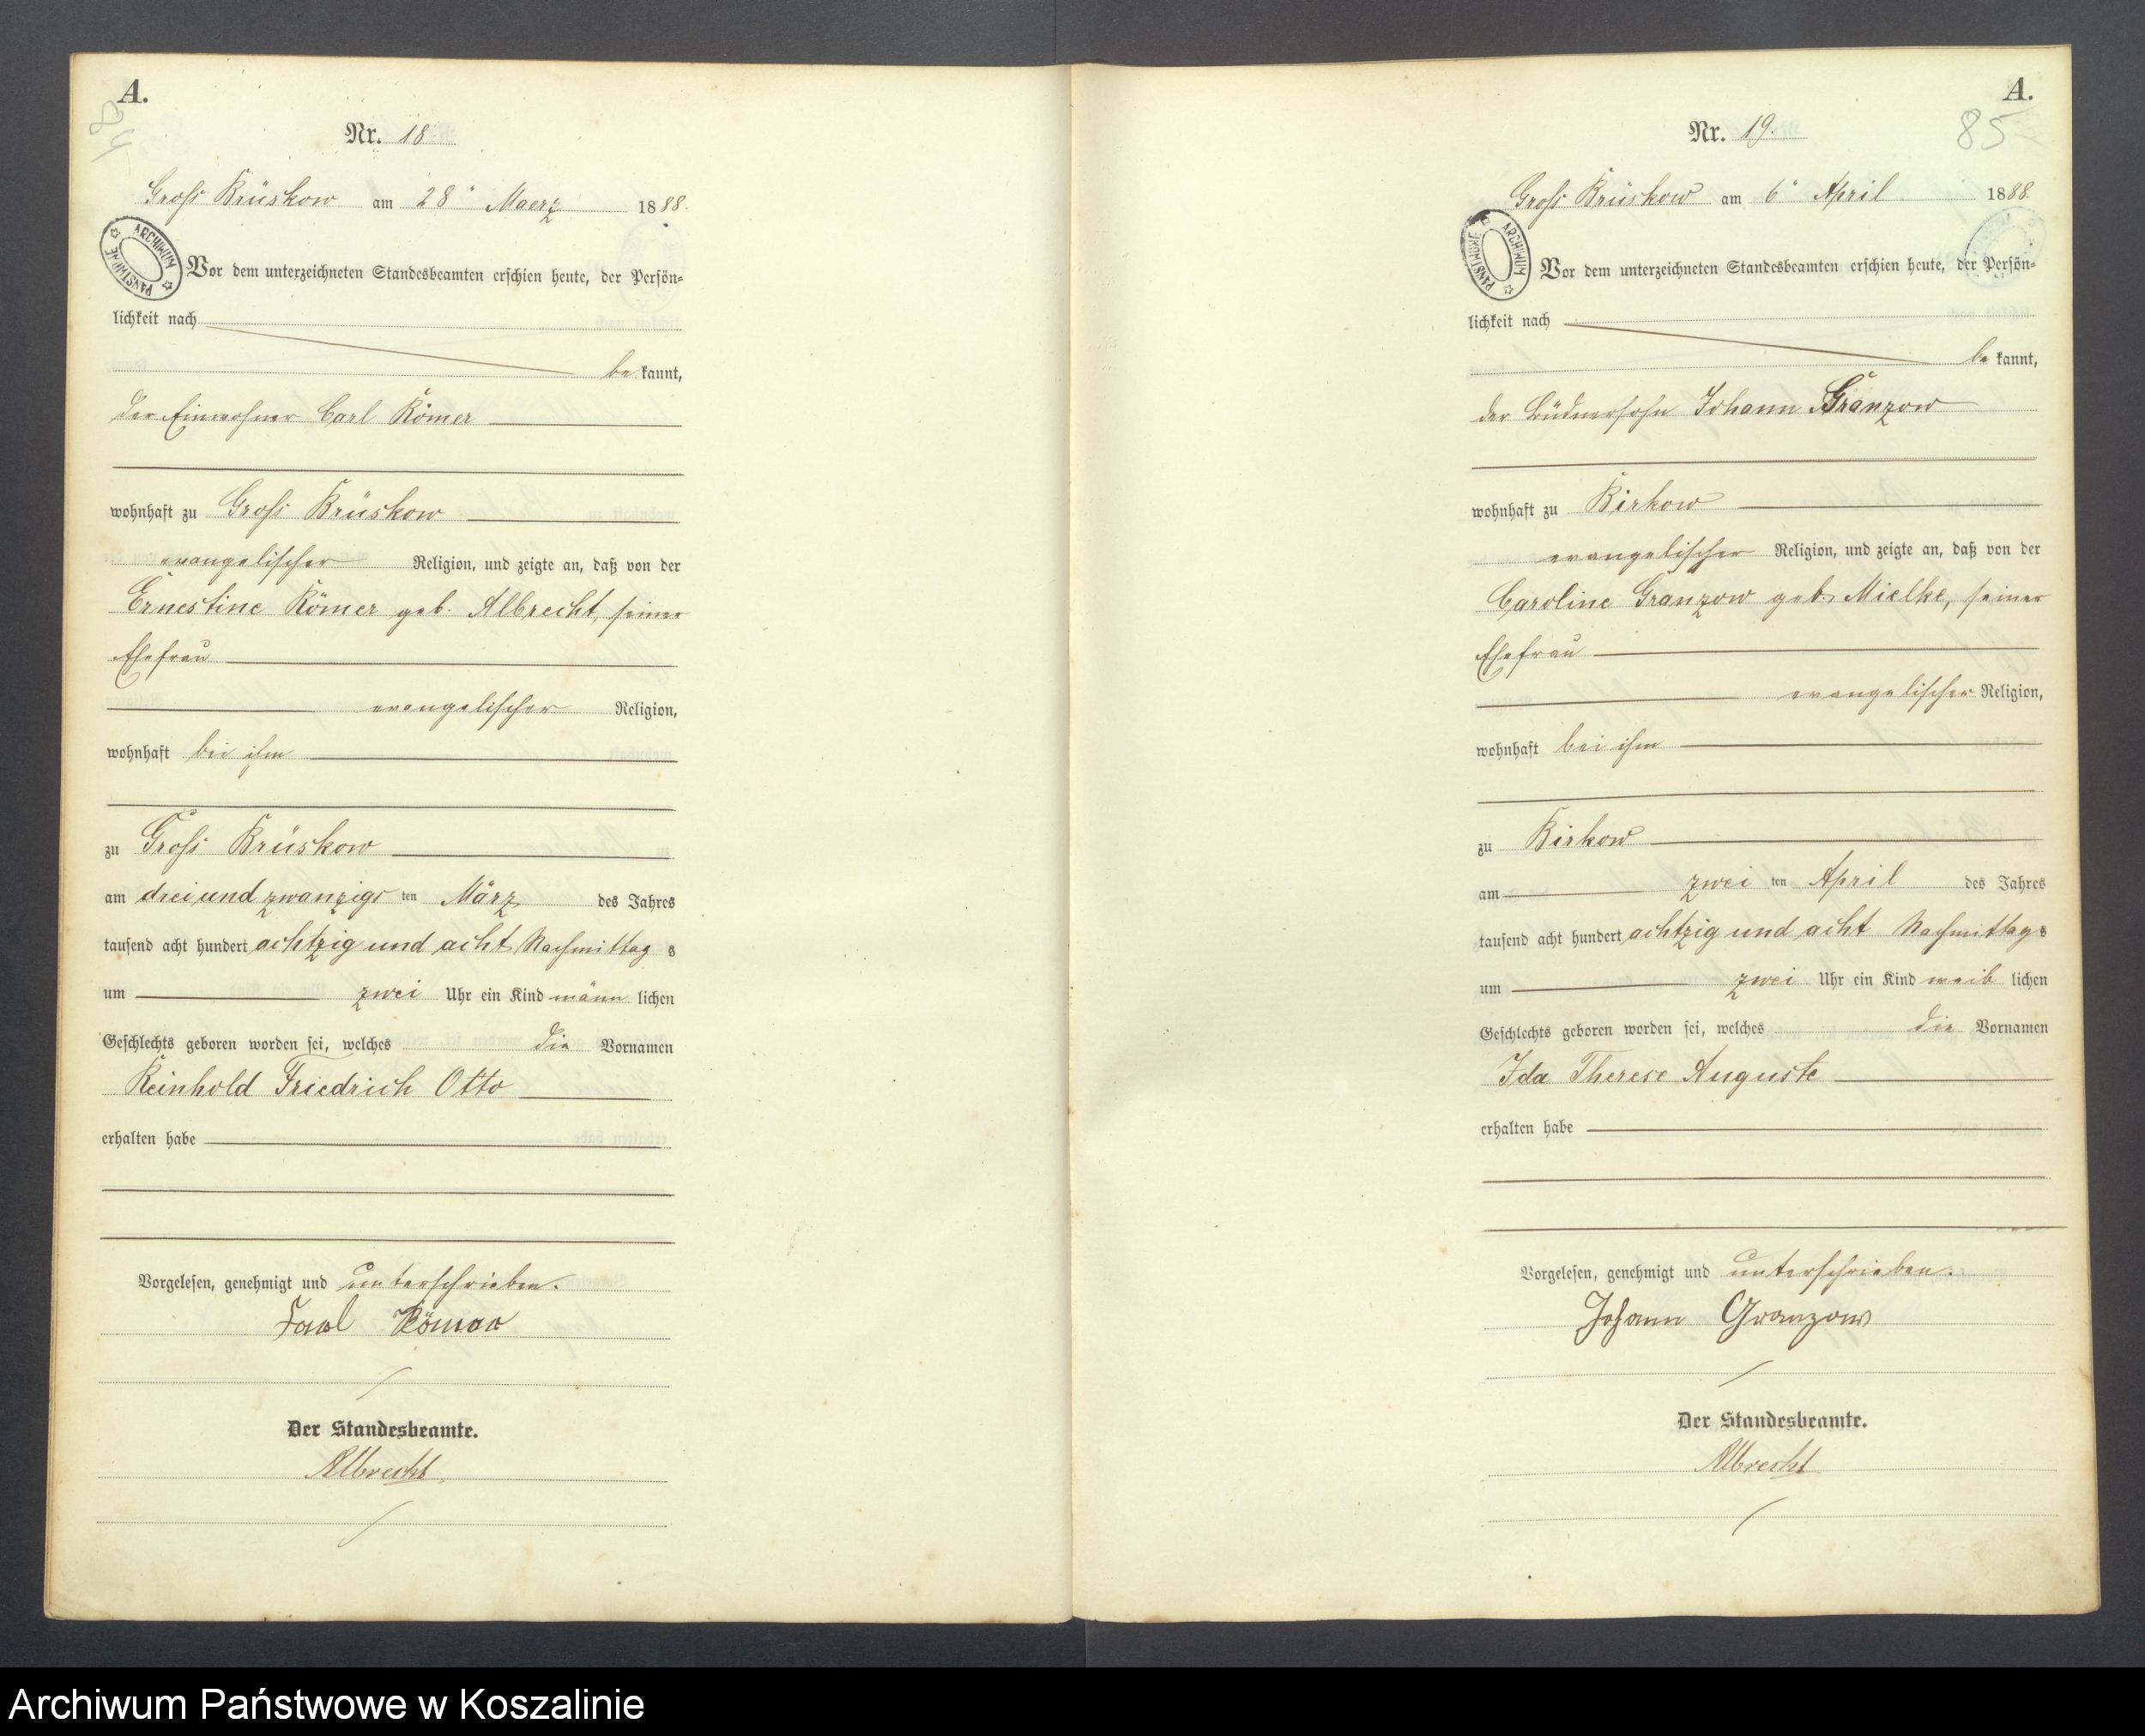 A.
84
Nr. 18
Groß Brüskow am 28" Maerz 1888.
ARCHIWUM PAŃSTWOWE
Vor dem unterzeichneten Standesbeamten erschien heute, der Persön-
lichkeit nach
be kannt,
der Einwohner Carl Römer
wohnhaft zu Groß Brüskow
evangelischer Religion, und zeigte an, daß von der
Ernestine Römer geb. Albrecht, seiner
Ehefrau
evangelischer Religion,
wohnhaft bei ihm
zu Groß Brüskow
am drei und zwanzigs ten März des Jahres
tausend acht hundert achtzig und acht Nachmittag s
um zwei Uhr ein Kind männ lichen
Geschlechts geboren worden sei, welches die Vornamen
Reinhold Friedrich Otto
erhalten habe
Vorgelesen, genehmigt und unterschrieben.
Carl Römer
Der Standesbeamte.
Albrecht
A.
85
Nr. 19.
Groß Brüskow am 6" April 1888.
ARCHIWUM PAŃSTWOWE
Vor dem unterzeichneten Standesbeamten erschien heute, der Persön-
lichkeit nach
be kannt,
der Büdnersohn Johann Granzow
wohnhaft zu Birkow
evangelischer Religion, und zeigte an, daß von der
Caroline Granzow geb. Mielke, seiner
Ehefrau
evangelischer Religion,
wohnhaft bei ihm
zu Birkow
am zwei ten April des Jahres
tausend acht hundert achtzig und acht Nachmittag s
um zwei Uhr ein Kind weib lichen
Geschlechts geboren worden sei, welches die Vornamen
Ida Therese Auguste
erhalten habe
Vorgelesen, genehmigt und unterschrieben.
Johann Granzow
Der Standesbeamte.
Albrecht
Archiwum Państwowe w Koszalinie